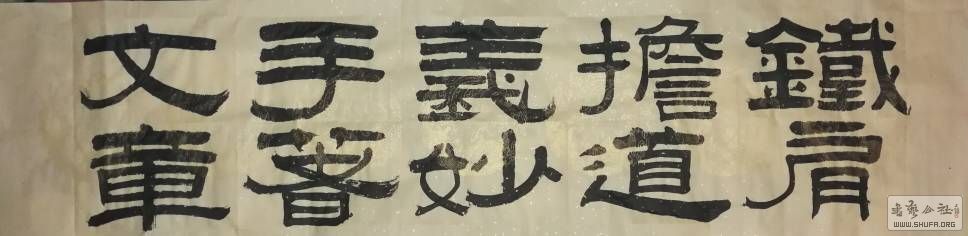 鐵肩
擔道
義妙
手著
文章
书艺公社
WWW.SHUFA.ORG